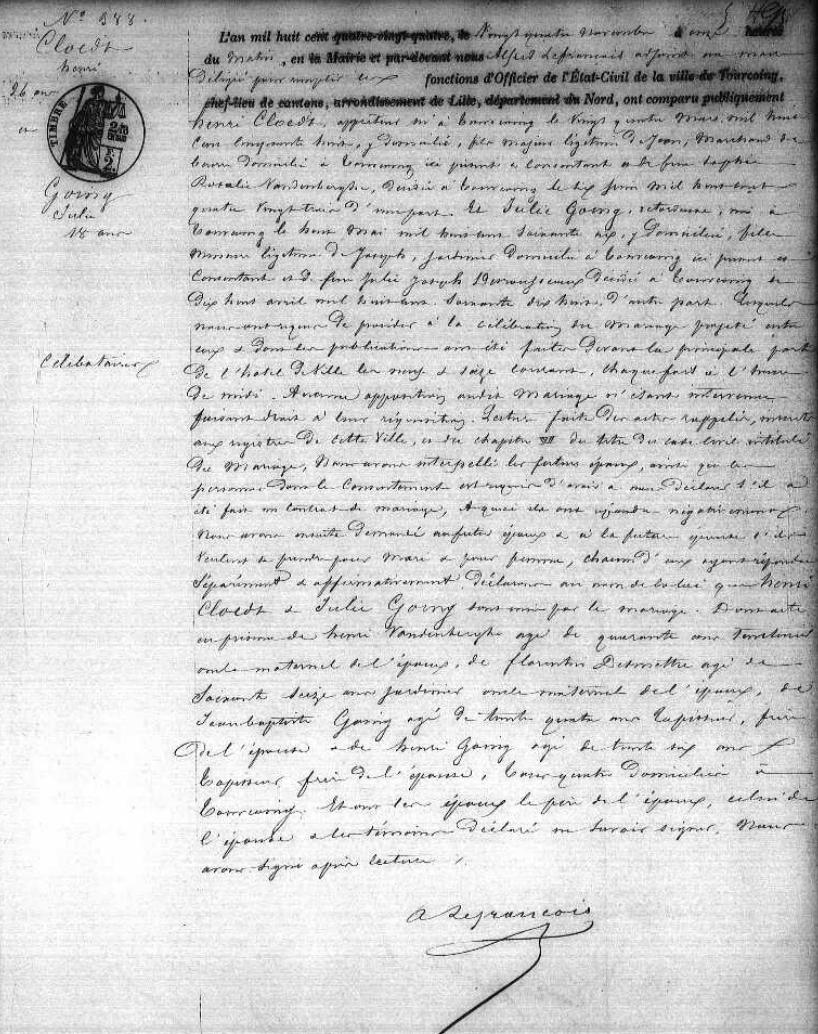 N° 388.
Cloedt
henri
26 ans
et
TIMBRE
Going
Julie
18 ans
Célibataires
L'an mil huit cent quatre-vingt-quatre, le Vingt quatre Novembre à onze heures
du Matin, en la Mairie et par-devant nous Alfred Lefrancois adjoint au maire
délégué pour remplir les fonctions d'Officier de l'État-Civil de la ville de Tourcoing,
chef-lieu de cantons, arrondissement de Lille, département du Nord, ont comparu publiquement
henri Cloedt, appréteur né à Tourcoing le Vingt quatre Mars mil huit
cent cinquante huit, y domicilié, fils majeur légitime de Jean, Marchand de
domicilié à Tourcoing ici présent & consentant & de feue Sophie
Rosalie Vandenberghe, décédée à Tourcoing le dix juin mil huit cent
quatre Vingt trois d'une part. Et Julie Going, née à
Tourcoing le huit Mai mil huit cent soixante six, y domiciliée, fille
mineure légitime de Joseph, jardinier domicilié à Tourcoing ici présent et
consentant et de feue Julie Joseph décédée à Tourcoing le
dix huit avril mil huit cent soixante dix huit, d'autre part. Lesquels
nous ont requis de procéder à la célébration du Mariage projeté entre
eux & dont les publications ont été faites devant la principale porte
de l'hôtel de Ville les neuf & seize courant, chaque fois à l'heure
de midi. Aucune opposition audit Mariage n'étant intervenue
faisant droit à leur réquisition. Lecture faite des actes rappelés, inscrits
aux registres de cette Ville, et du chapitre VI du titre du code civil intitulé
du Mariage, Nous avons interpellé les futurs époux, ainsi que les
personnes dont le consentement est requis d'avoir à nous déclarer s'il a
été fait un contrat de mariage, à quoi ils ont répondu négativement.
Nous avons ensuite demandé au futur époux & à la future épouse s'ils
Veulent se prendre pour Mari & pour femme, chacun d'eux ayant répondu
Séparément & affirmativement, déclarons au nom de la loi que henri
Cloedt & Julie Going sont unis par le mariage. Dont acte
en présence de henri Vandenberghe agé de quarante ans
oncle maternel de l'époux, de florentin Desmettre agé de
Soixante Seize ans Jardinier oncle maternel de l'époux, de
Jean baptiste Going agé de trente quatre ans Tapissier, frère
de l'épouse & de henri Going agé de trente six ans
Tapissier frère de l'épouse, tous quatre domiciliés à
Tourcoing. Et ont les époux le père de l'époux, celui de
l'épouse & les témoins déclaré ne savoir signer, Nous
avons signé après lecture.
A Lefrancois